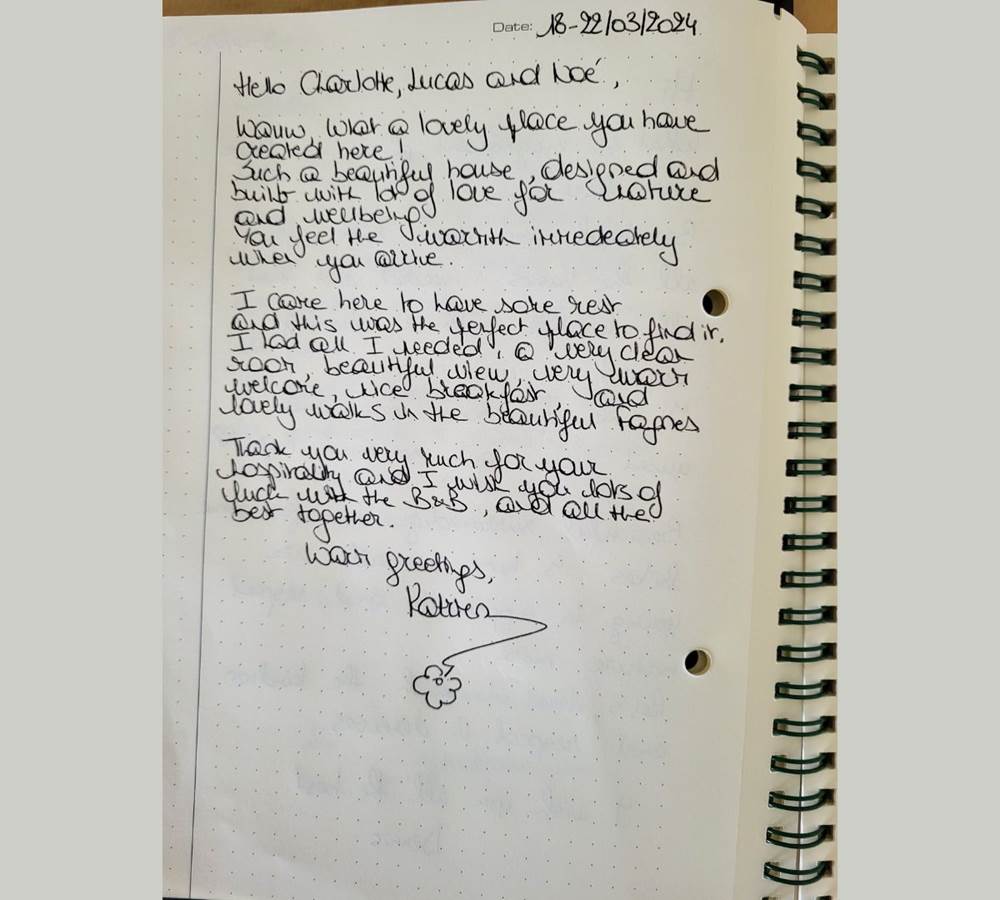 Date: 18-22/03/2024
Hello Charlotte, Lucas and Noé,
Wauw, what a lovely place you have
created here!
Such a beautiful house, designed and
built with lot of love for nature
and wellbeing
You feel the warmth immedeately
when you arrive.
I came here to have some rest
and this was the perfect place to find it.
I had all I needed, a very clean
room, beautiful view, very warm
welcome, nice breakfast and
lovely walks in the beautiful Fagnes
Thank you very much for your
hospitality and I wish you lots of
luck with the B&B, and all the
best together.
Warm greetings,
Katrien